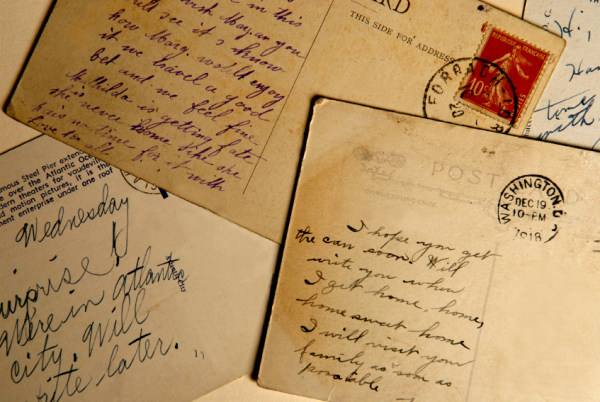 in this
you
will see it I know
how Mary would enjoy
it we travel a good
bet and we feel fine
Matilda is getting fate
this never some Sept are
it with
THIS SIDE FOR ADDRESS
FORBACH
REPUBLIQUE FRANÇAISE
10
Hi,
time
with
mous Steel Pier exten
over the Atlantic Oc
dern theaters for vaudevil
d motion pictures, it is the
ment enterprise under one roof
Wednesday
urprise!
Were in Atlantic
city. Will
rite later.
POST
WASHINGTON, D.C.
DEC 19
10-PM
1918
I hope you get
the can soon. Will
write you when
I get home, home,
home sweat home
I will visit you
family as soon as
posatible